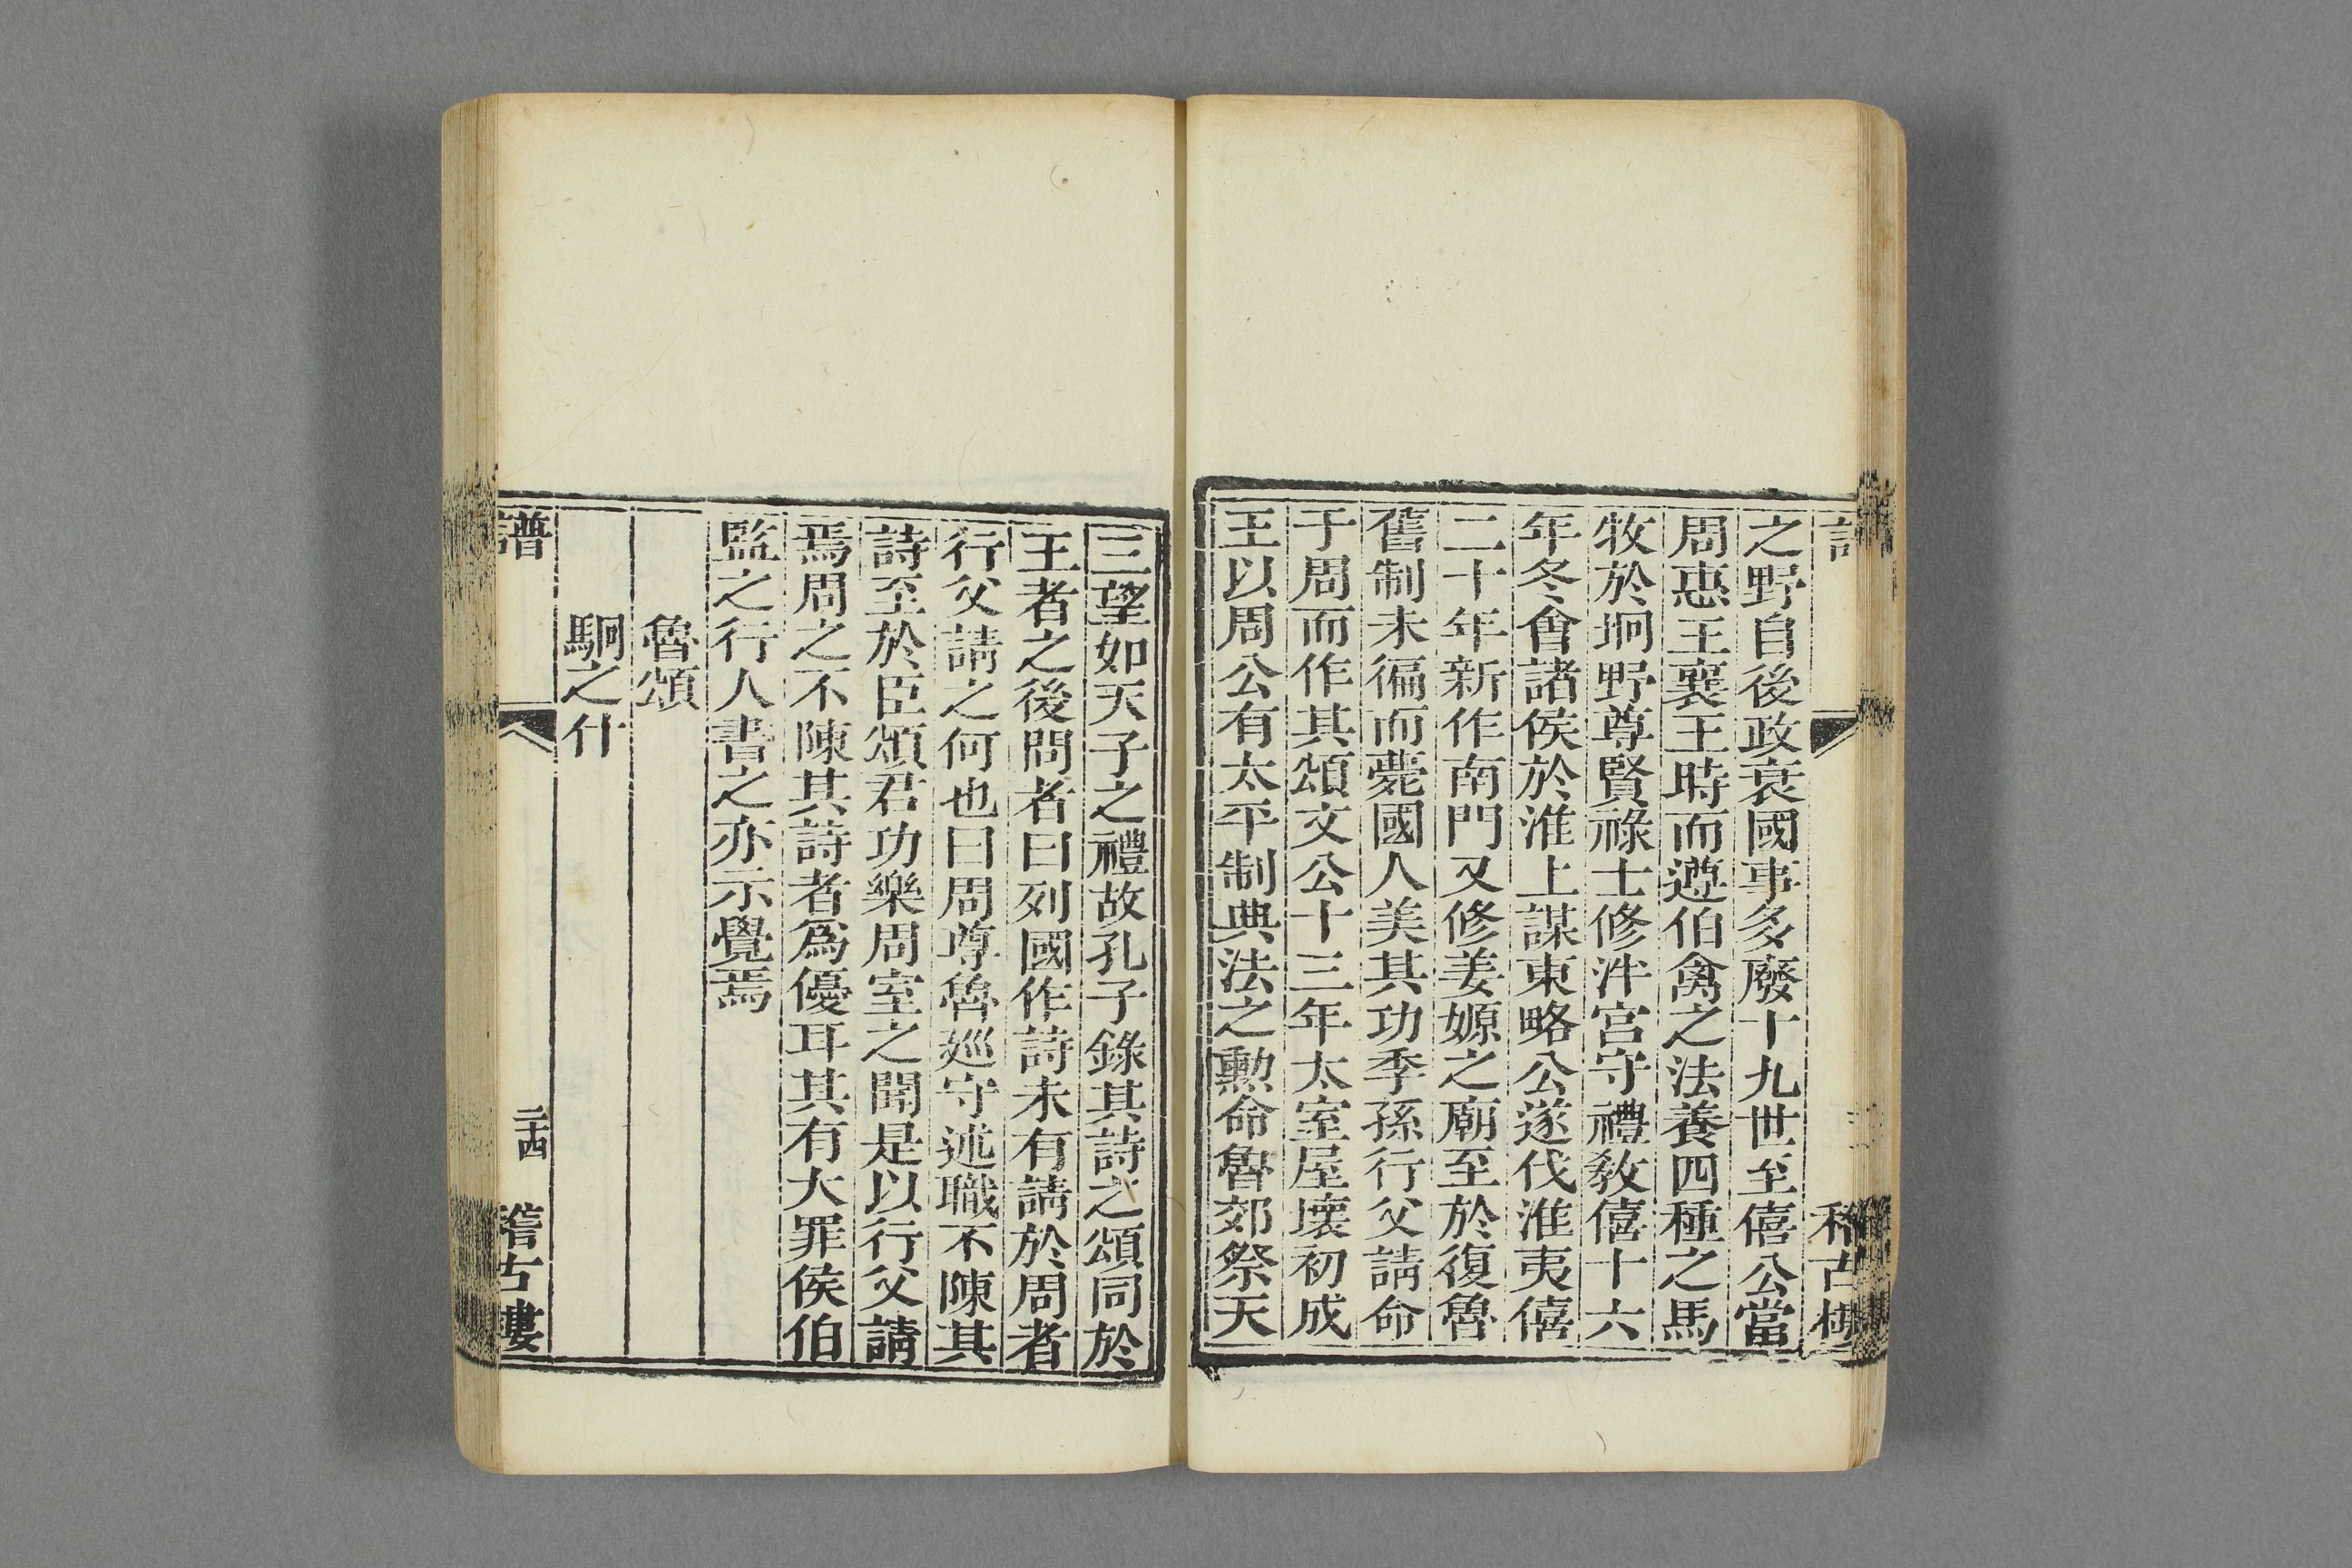 之野自後政衰國事多廢十九世至僖公當
周惠王襄王時而遵伯禽之法養四種之馬
牧於坰野尊賢祿士修泮宮守禮敎僖十六
年冬會諸侯於淮上謀東略公遂伐淮夷僖
二十年新作南門又修姜嫄之廟至於復魯
舊制未徧而薨國人美其功季孫行父請命
于周而作其頌文公十三年太室屋壞初成
王以周公有太平制典法之勲命魯郊祭天
三望如天子之禮故孔子錄其詩之頌同於
王者之後問者曰列國作詩未有請於周者
行父請之何也曰周尊魯廵守述職不陳其
詩至於臣頌君功樂周室之聞是以行父請
焉周之不陳其詩者爲優耳其有大罪侯伯
監之行人書之亦示覺焉
魯頌
駉之什
譜
二十四
稽古樓